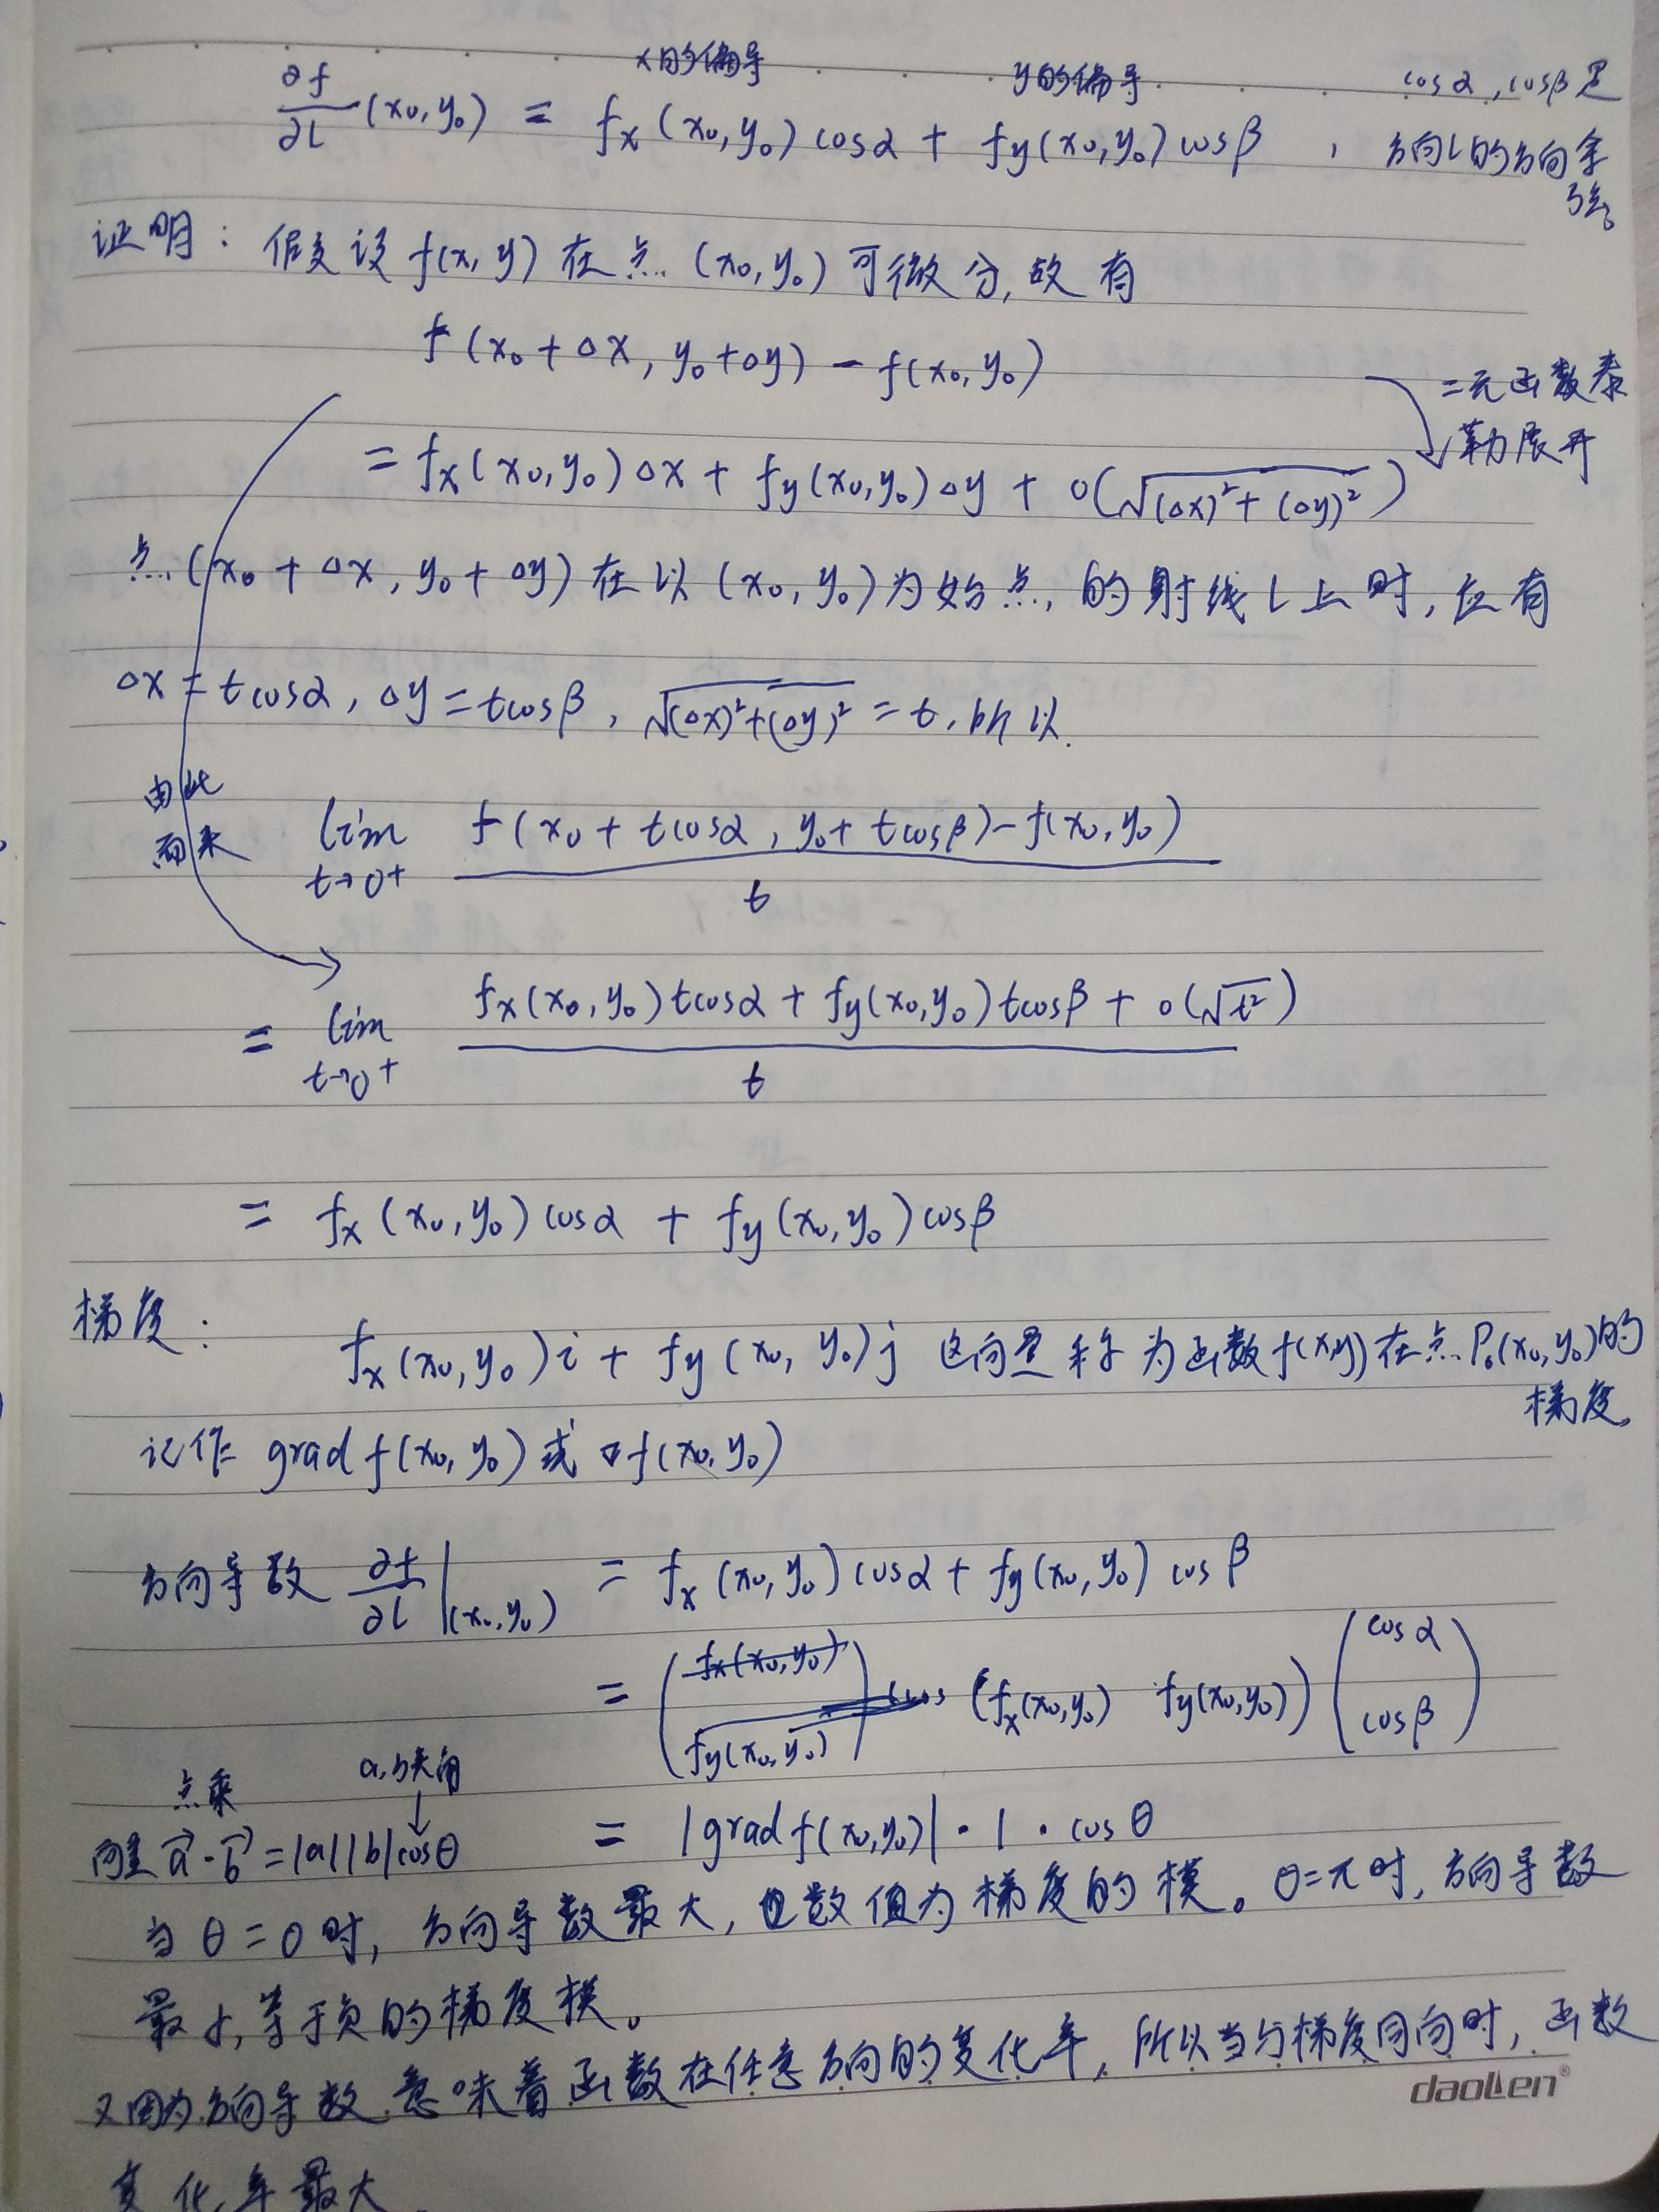 x的偏导 y的偏导 cosα,cosβ是
∂f/∂l (x₀,y₀) = fx(x₀,y₀)cosα + fy(x₀,y₀)cosβ , 方向l的方向余
弦。
证明: 假设f(x,y)在点(x₀,y₀)可微分,故有
f(x₀+△x, y₀+△y) - f(x₀,y₀)
二元函数泰
勒展开
= fx(x₀,y₀)△x + fy(x₀,y₀)△y + o(√((△x)²+(△y)²))
点(x₀+△x, y₀+△y)在以(x₀,y₀)为始点的射线l上时,应有
△x=tcosα, △y=tcosβ, √((△x)²+(△y)²)=t,所以.
由此
而来
lim t→0+ (f(x₀+tcosα, y₀+tcosβ)-f(x₀,y₀))/t
= lim t→0+ (fx(x₀,y₀)tcosα + fy(x₀,y₀)tcosβ + o(√t²))/t
= fx(x₀,y₀)cosα + fy(x₀,y₀)cosβ
梯度:
fx(x₀,y₀)i + fy(x₀,y₀)j 这向量称为函数f(x,y)在点P₀(x₀,y₀)的
梯度,
记作 grad f(x₀,y₀)或▽f(x₀,y₀)
方向导数 ∂f/∂l |(x₀,y₀) = fx(x₀,y₀)cosα + fy(x₀,y₀)cosβ
= (fx(x₀,y₀) fy(x₀,y₀)) cos (fx(x₀,y₀) fy(x₀,y₀)) (cosα cosβ)
点乘 a,b夹角
向量 a·b=|a||b|cosθ = |grad f(x₀,y₀)|·1·cosθ
当θ=0时,方向导数最大,且数值为梯度的模。θ=π时,方向导数
最小,等于负的梯度模。
又因为方向导数意味着函数在任意方向的变化率,所以当与梯度同向时,函数
daolen®
变化率最大.